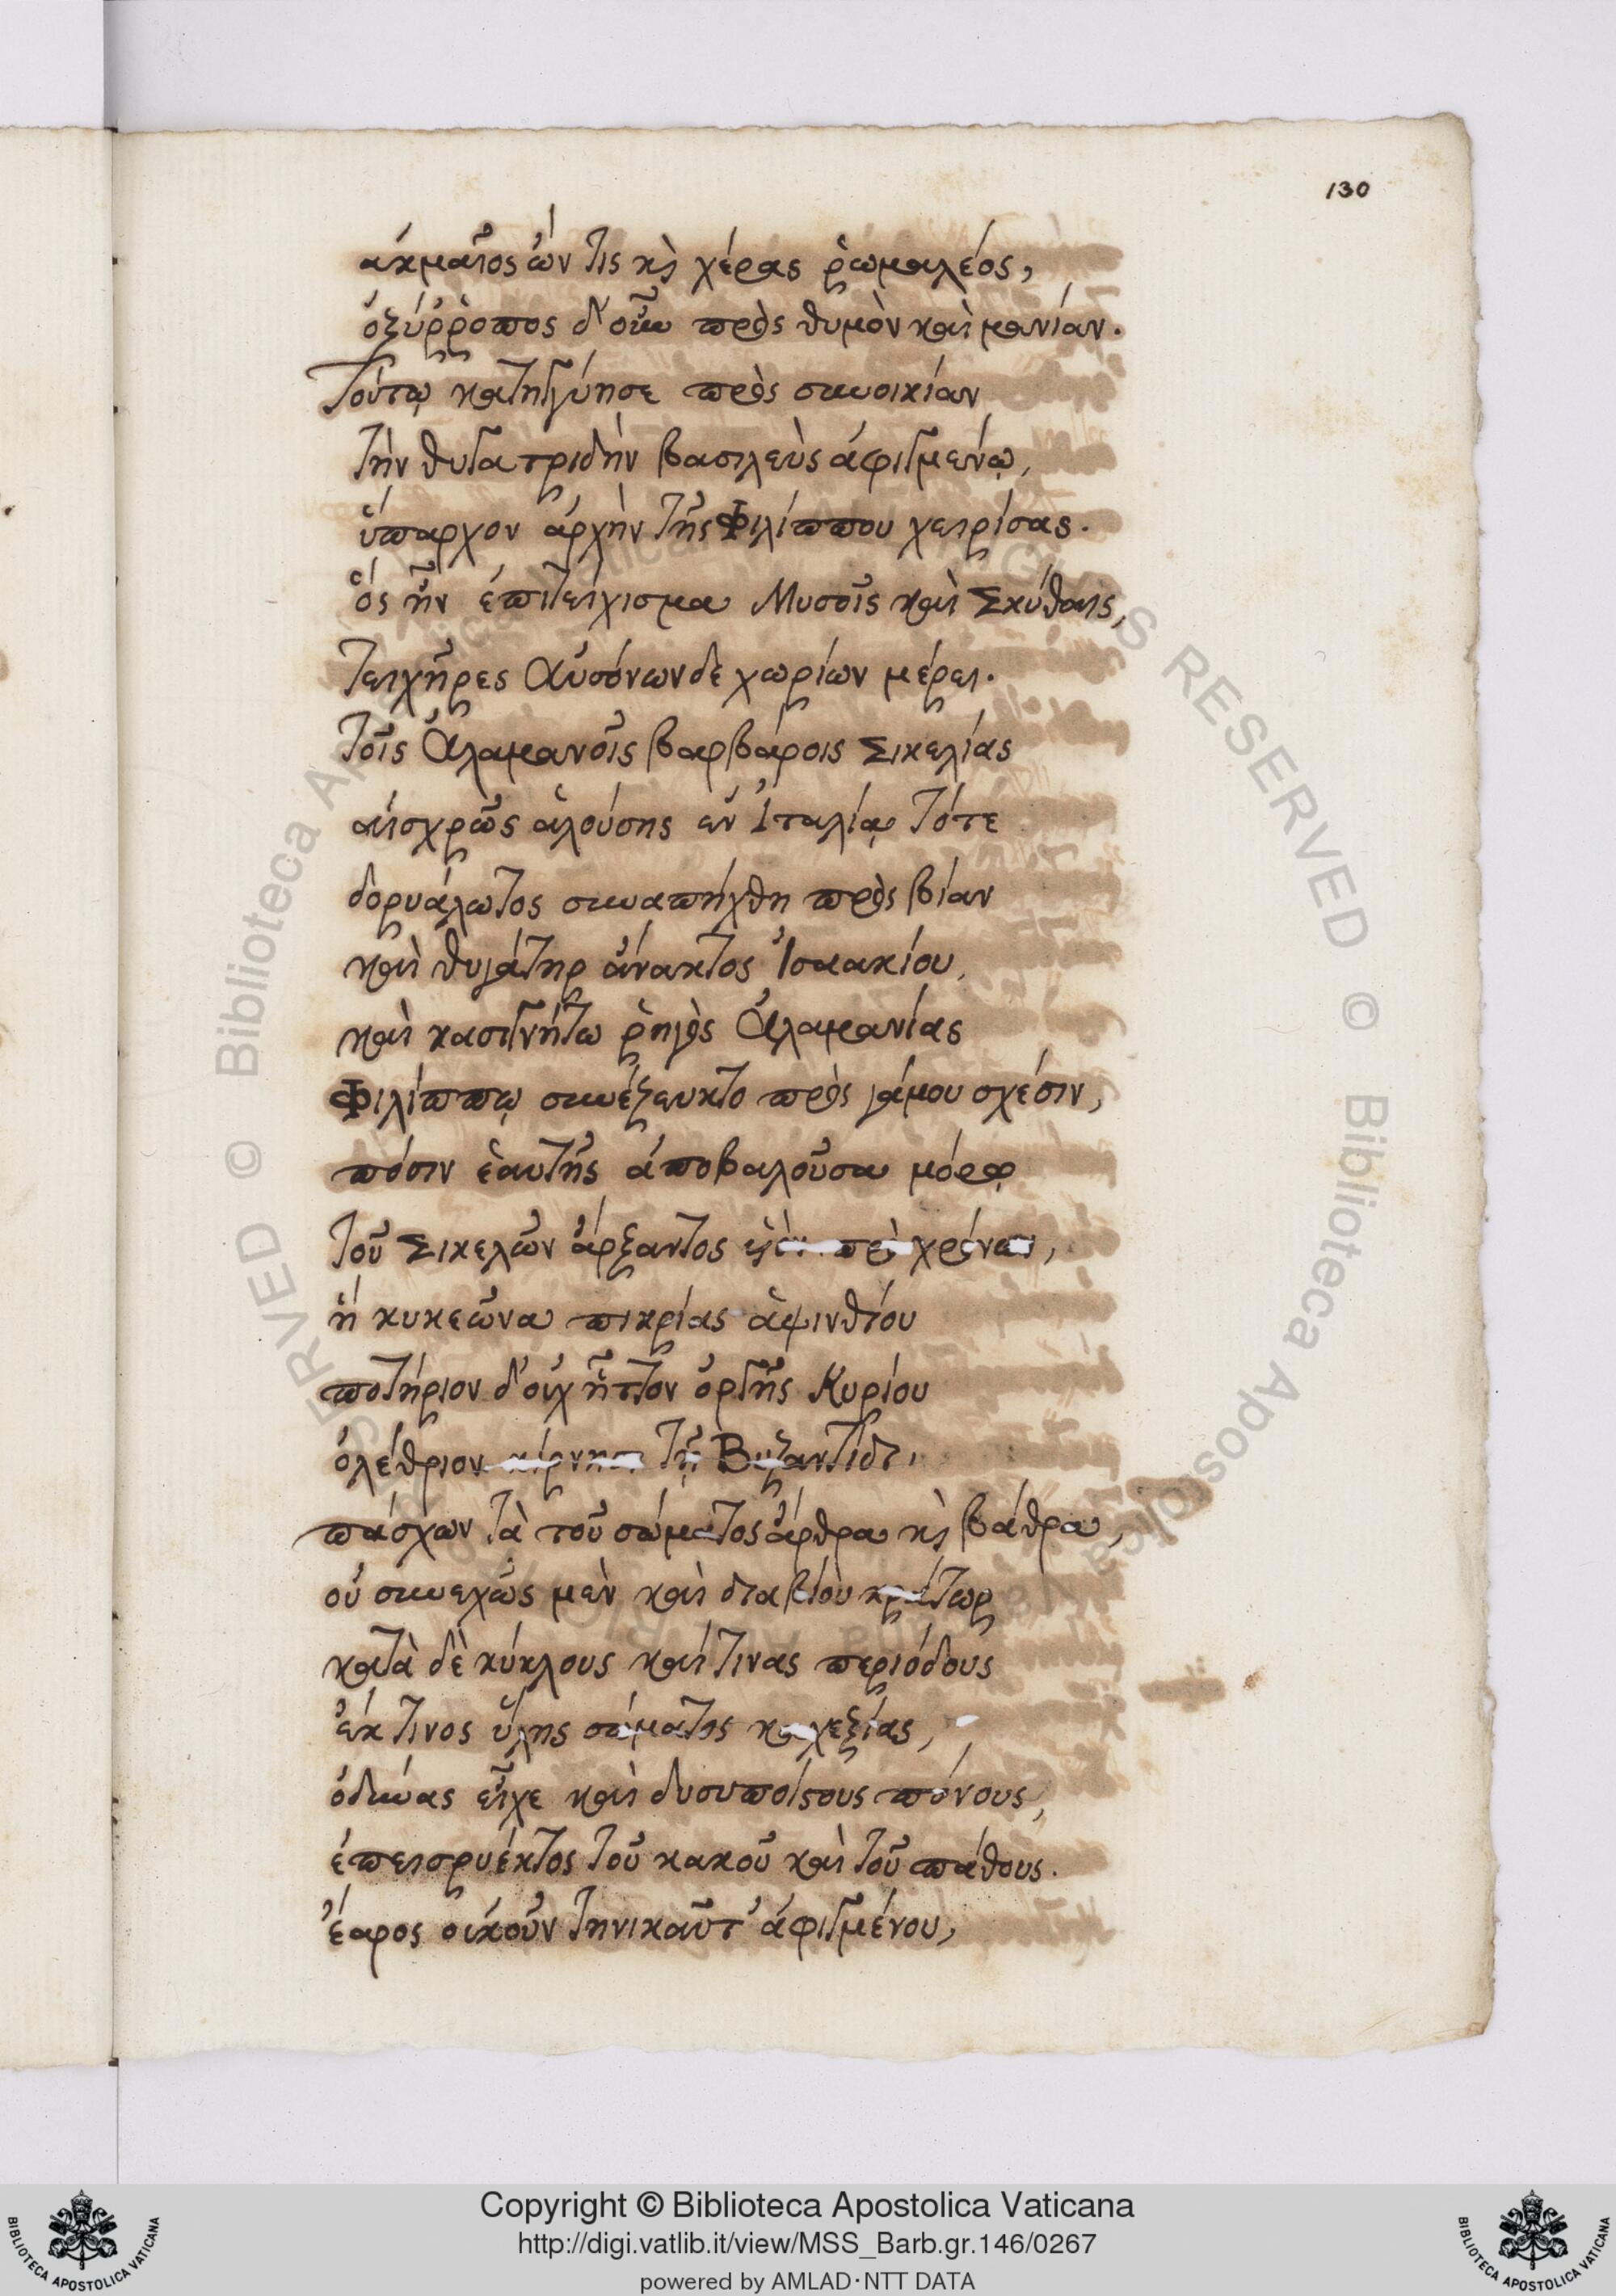 130
ἀκμαῖος ὤν τις κὶ χέρας ῥωμαλέος,
ὀξύῤῥοπος δ' οὖν πρὸς θυμὸν καὶ μανίαν.
Τούτῳ κατηγγύησε πρὸς συνοικίαν
τὴν θυγατριδῆν βασιλεὺς ἀφιγμένῳ,
ὕπαρχον ἀρχὴν τῆς Φιλίππου χειρίσας.
ὃς ἦν ἐπιτείχισμα Μυσοῖς καὶ Σκύθαις,
τειχῆρες Αὐσόνων δε χωρίων μέρει.
τοῖς Ἀλαμανοῖς βαρβάροις Σικελίας
αἰσχρῶς ἁλούσης ἐν Ἰταλίᾳ τότε
δορυάλωτος συναπήχθη πρὸς βίαν
καὶ θυγάτηρ ἄνακτος Ἰσαακίου,
καὶ κασιγνήτω ῥηγὸς Ἀλαμανίας
Φιλίππῳ συνέζευκτο πρὸς γάμου σχέσιν,
πόσιν ἑαυτῆς ἀποβαλοῦσα μόρῳ
τοῦ Σικελῶν ἄρξαντος πρὸ χρόνων,
ἢ κυκεῶνα πικρίας ἀψινθίου
ποτήριον δ' οὐχ ἧττον ὀργῆς Κυρίου
ὀλέθριον κίρνησι τῇ Βυζαντίδι.
πάσχων τὰ τοῦ σώματος ἄρθρα κὶ βάθρα,
οὐ συνεχῶς μὲν καὶ διαβίου κράτωρ
κατὰ δὲ κύκλους καί τινας περιόδους
ἐκ τινος ὕλης σώματος καχεξίας,
ὀδύνας εἶχε καὶ δυσυποίστους πόνους,
ἐπεισρυέντος τοῦ κακοῦ καὶ τοῦ πάθους.
ἔαρος οὐκοῦν τηνικαῦτ' ἀφιγμένου,
© Biblioteca Apostolica Vaticana
RIGHTS RESERVED
Copyright © Biblioteca Apostolica Vaticana
http://digi.vatlib.it/view/MSS_Barb.gr.146/0267
powered by AMLAD·NTT DATA
BIBLIOTECA APOSTOLICA VATICANA
BIBLIOTECA APOSTOLICA VATICANA